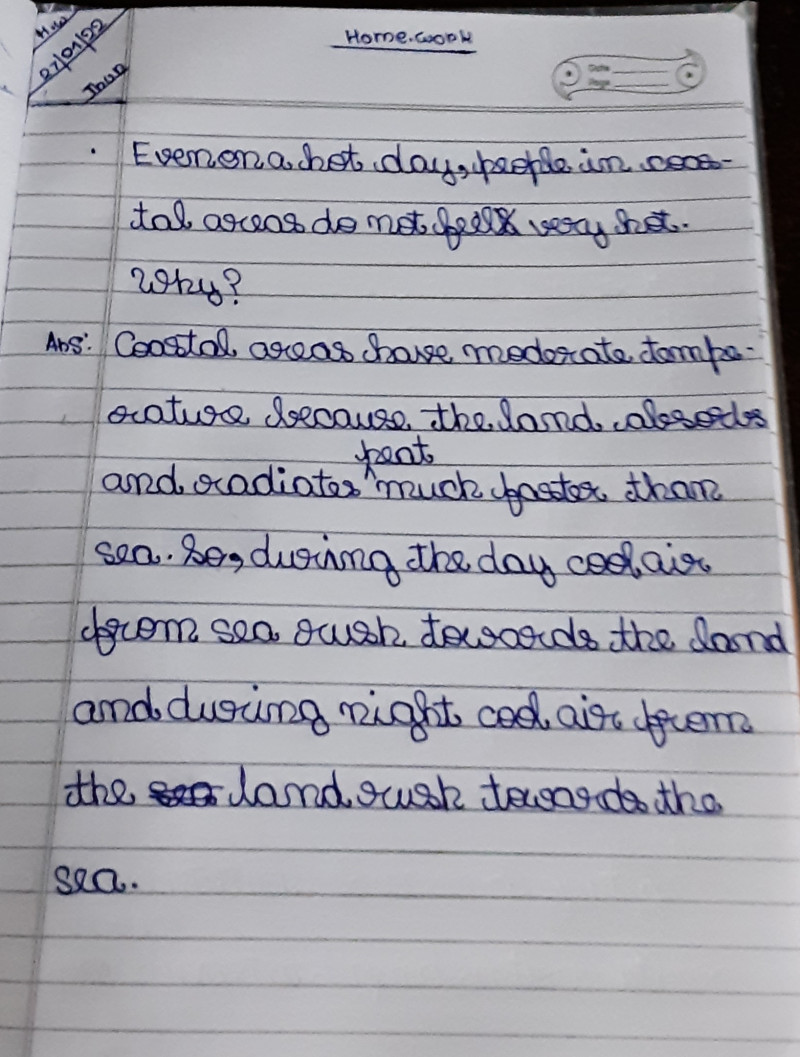 H.W
27/01/22
Thur
Home.work
Date
Page
. Even on a hot day, people in coas-
tal areas do not feel very hot.
Why?
Ans: Coastal areas have moderate tempe-
rature because the land absorbs
heat
and radiates ^ much faster than
sea. So, during the day cool air
from sea rush towards the land
and during night cool air from
the sea land rush towards the
sea.